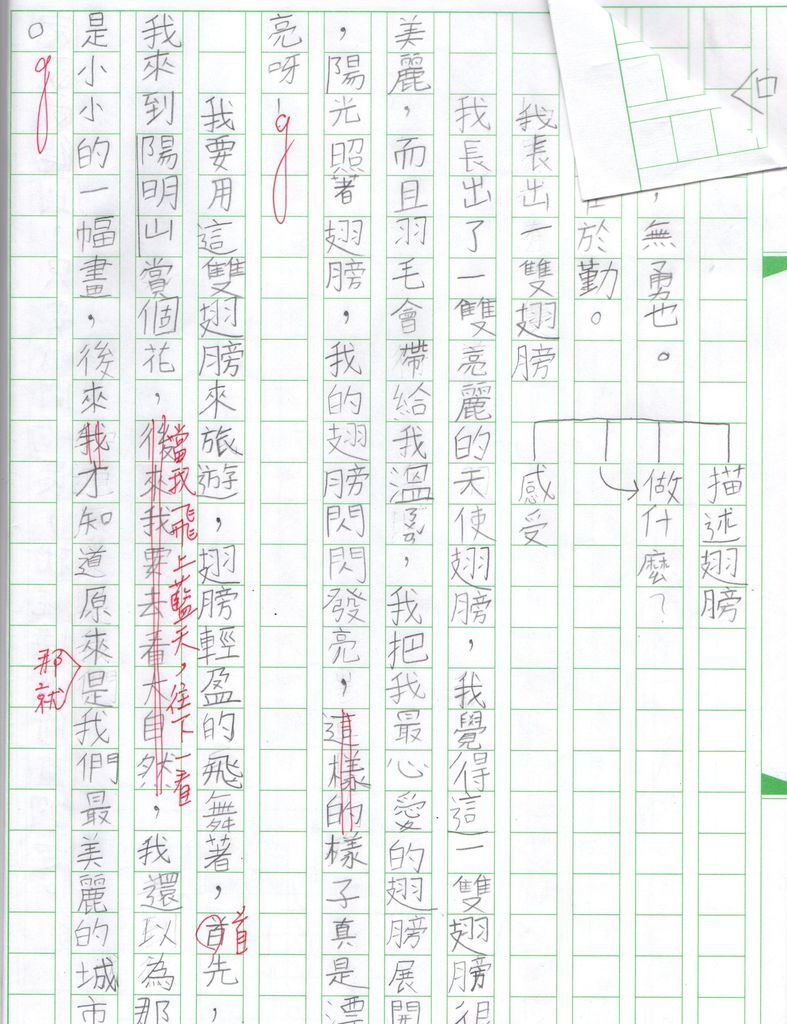 描述翅膀
做什麼？
，無勇也。
於勤。
感受
我長出一雙翅膀
我長出了一雙亮麗的天使翅膀，我覺得這一雙翅膀很
美麗，而且羽毛會帶給我溫暖，我把我最心愛的翅膀展開
，陽光照著翅膀，我的翅膀閃閃發亮，這樣的樣子真是漂
亮呀！
我要用這雙翅膀來旅遊，翅膀輕盈的飛舞著，首先，
首
我來到陽明山賞個花，後來我要去看大自然，我還以為那
當我飛上藍天，往下一看
是小小的一幅畫，後來我才知道原來是我們最美麗的城市
那就
。